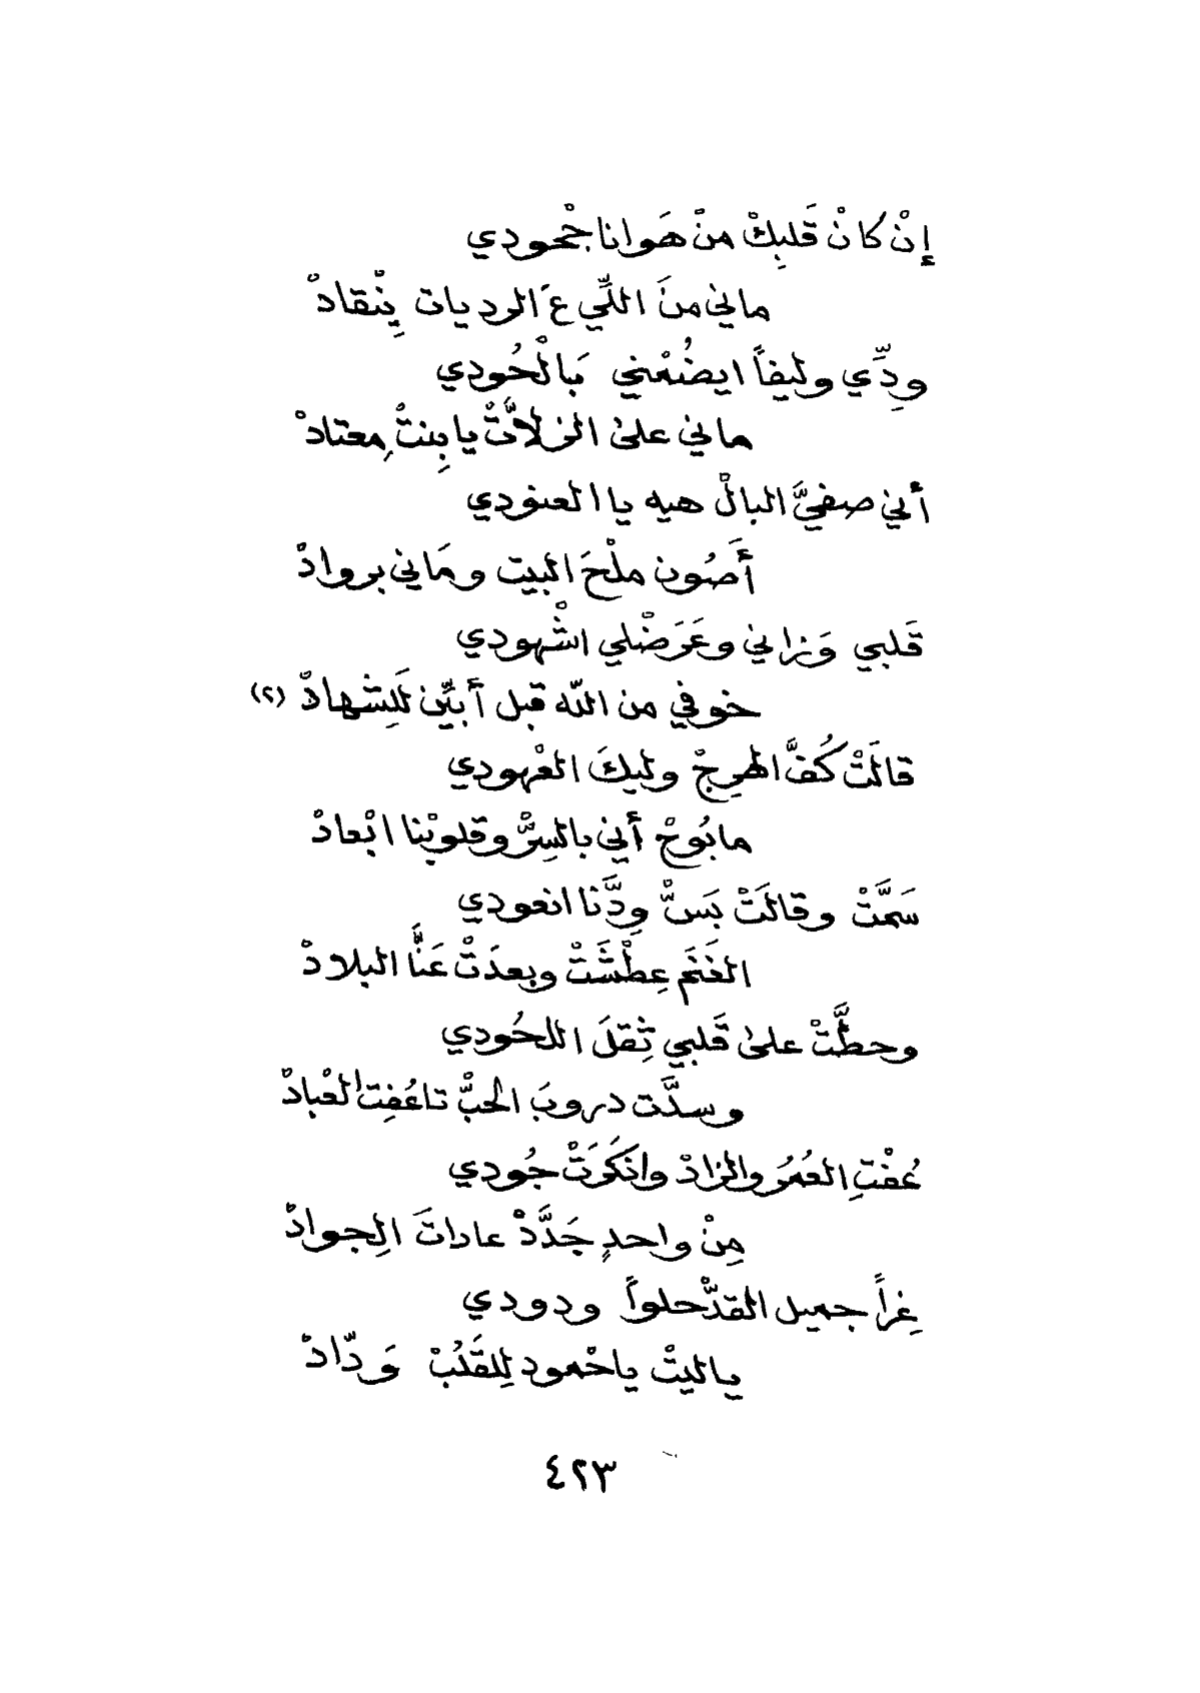 إِنْ كانْ قَلبِكْ منْ هَوانا جْحُودي
ماني منَ اللِّي عَ الرديات يِنْقادْ
ودِّي وليفاً ايضُمْني بَالْحُودي
ماني على الزلاَّتْ يا بِنتْ مِعتادْ
أني صفيَّ البالْ هيه يا العنودي
أَصُون ملْحَ البيت ومَاني بروادْ
قَلبي وَزاني وعَرَضْلي اشْهودي
خوفي من اللّه قبل أبيِّن لَلِشهادْ (٢)
قالَتْ كُفَّ الهرِجْ وليكَ العْهودي
مابُوحْ أني بالسِرّْ وقلوبْنا ابْعادْ
سَمَّتْ وقالَتْ بَسّْ ودَّنا انعودي
الغَنَم عِطْشَتْ وبعدَتْ عَنَّا البلادْ
وحطَّتْ على قَلبي ثِقلَ اللحُودي
وسدَّت دروبَ الحبّْ تاعُفِت العْبادْ
عُفْتِ العُمُر والزادْ وانكَرَتْ جُودي
مِنْ واحدٍ جَدَّدْ عاداتَ الِجوادْ
غِراً جميل القدّْ حلواً ودودي
ياليتْ ياحْمود لِلقَلُبْ وَدّادْ
٤٢٣